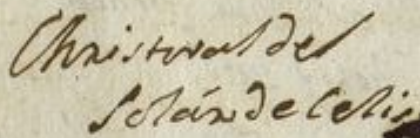 Christoval del
Solár de Celis